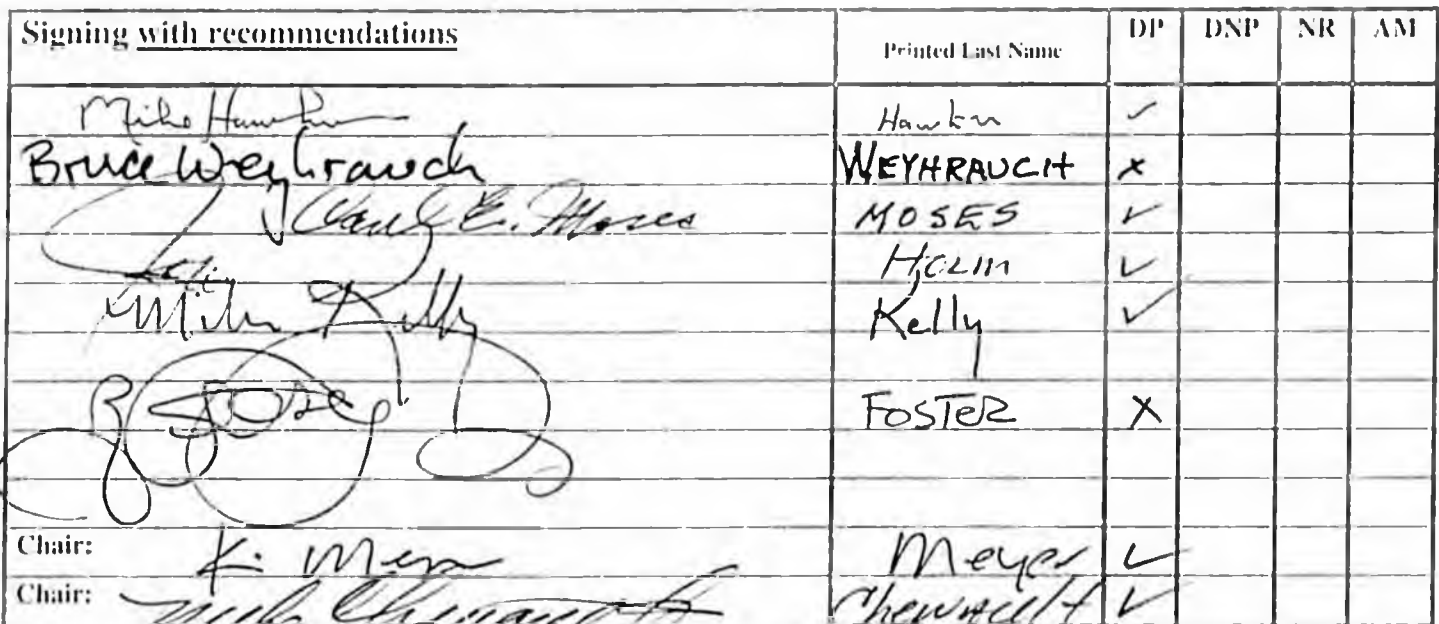 Signing with recommendations Printed Last Name DP DNP NR AM
Mike Hawker Hawker ✓
Bruce Weyhrauch WEYHRAUCH x
Carl E. Moses MOSES ✓
Holm ✓
Mike Kelly Kelly ✓
FOSTER X
Chair: K. Meyer Meyer ✓
Chair: Chenault ✓